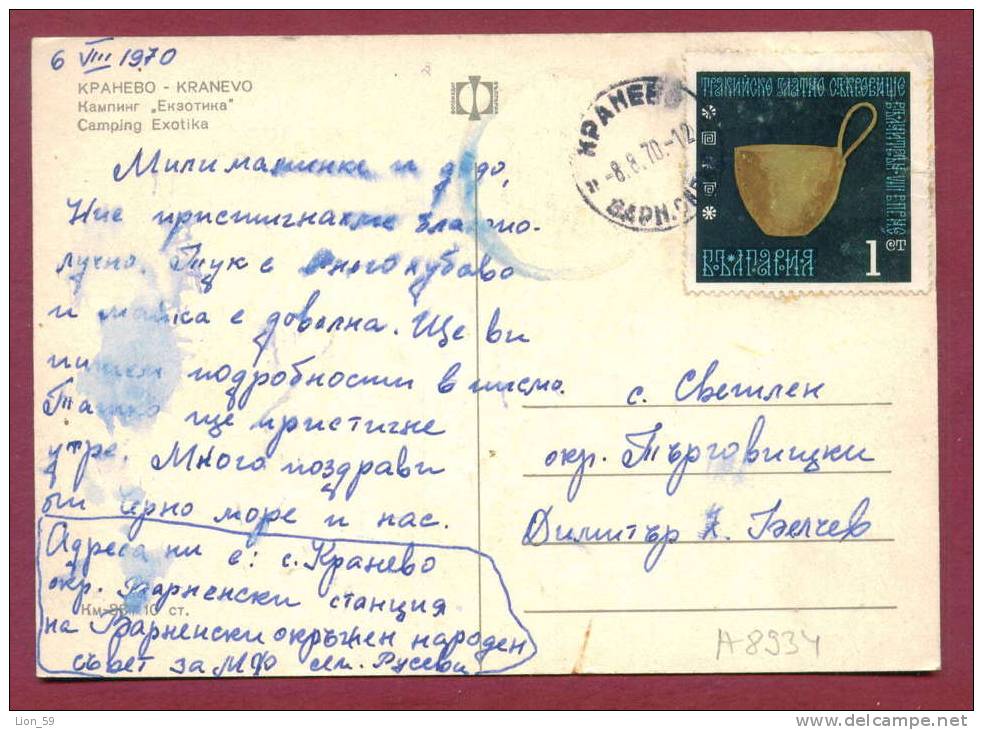 6 VIII 1970
КРАНЕВО - KRANEVO
Кампинг „Екзотика"
Camping Exotika
Мили маминке и дядо,
Ние пристигнахме благопо-
лучно. Тук е много хубаво
и майка е доволна. Ще ви
пишем подробности в писмо.
Татко ще пристигне
утре. Много поздрави
от Черно море и нас.
Адреса ни е: с. Кранево
окр. Варненски станция
на Варненски окръжен народен
съвет за МФ сем. Русеви
10 ст.
КРАНЕВО
-8.8.70.-12
ВАРН.
ТРАКИЙСКО ЗЛАТНО СЪКРОВИЩЕ
БЪЛГАРИЯ
1 СТ
с. Светлен
окр. Търговищки
Димитър Х. Белчев
A8934
Lion_59
http://www.delcampe.net